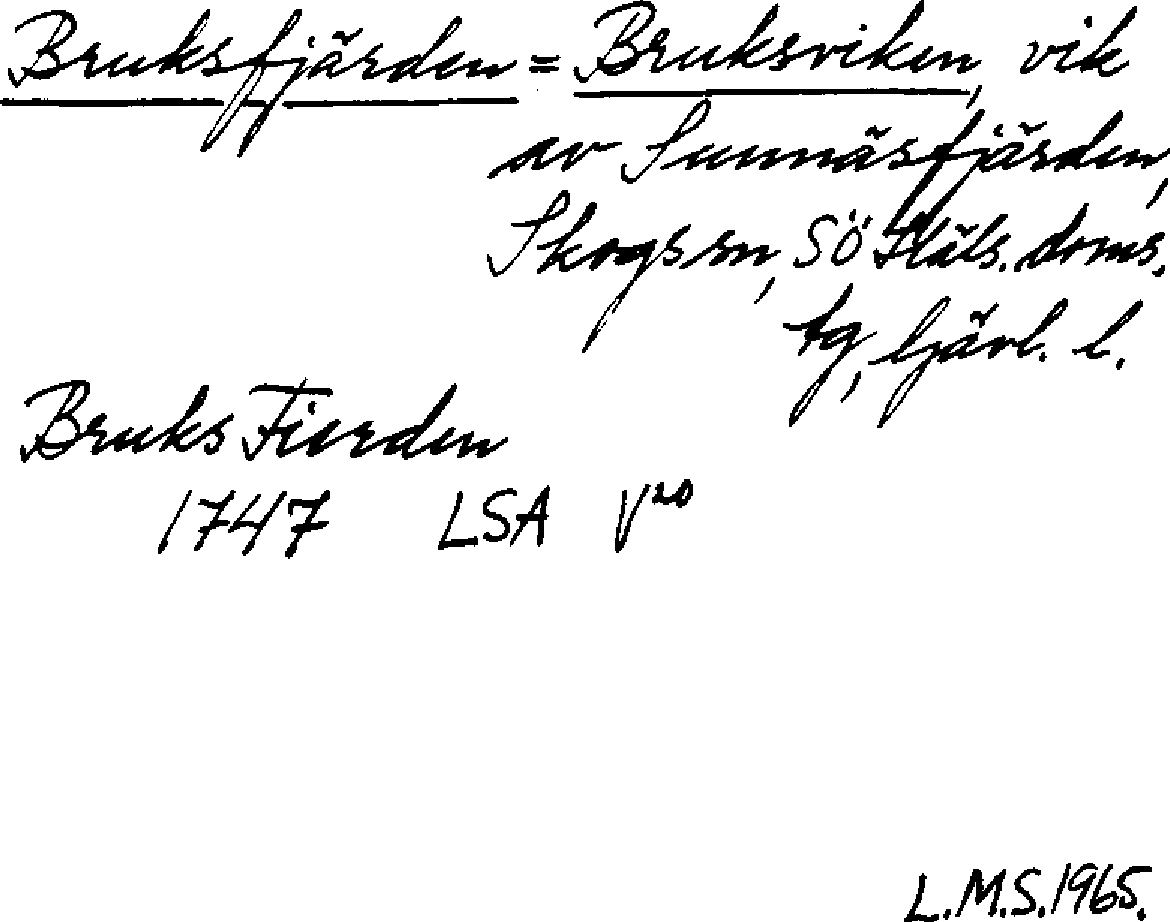 Bruksfjärden = Bruksviken, vik
av Sunnäsfjärden,
Skogs sn, SÖ Häls. doms.
tg, Gävl. l.
Bruks Fierden
1747 LSA V²⁰
L.M.S. 1965.